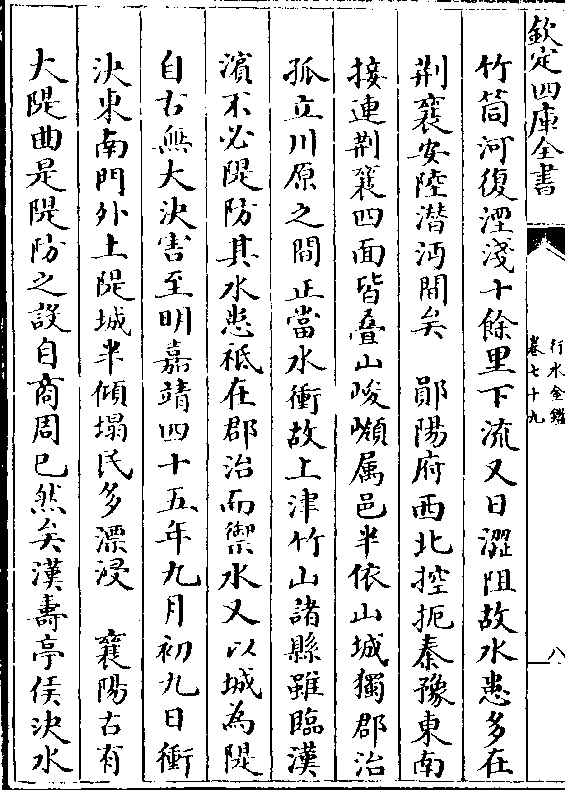 欽定四庫全書
行水金鑑
卷七十九
八
竹筒河復湮淺十餘里下流又日澀阻故水患多在
荆襄安陸潛沔間矣　鄖陽府西北控扼秦豫東南
接連荆襄四面皆叠山峻嶺属邑半依山城獨郡治
孤立川原之間正當水衝故上津竹山諸縣雖臨漢
濱不必隄防其水患祗在郡治而禦水又以城為隄
自古無大決害至明嘉靖四十五年九月初九日衝
決東南門外上隄城半傾塌民多漂浸　襄陽古有
大隄曲是隄防之設自商周已然矣漢壽亭侯決水